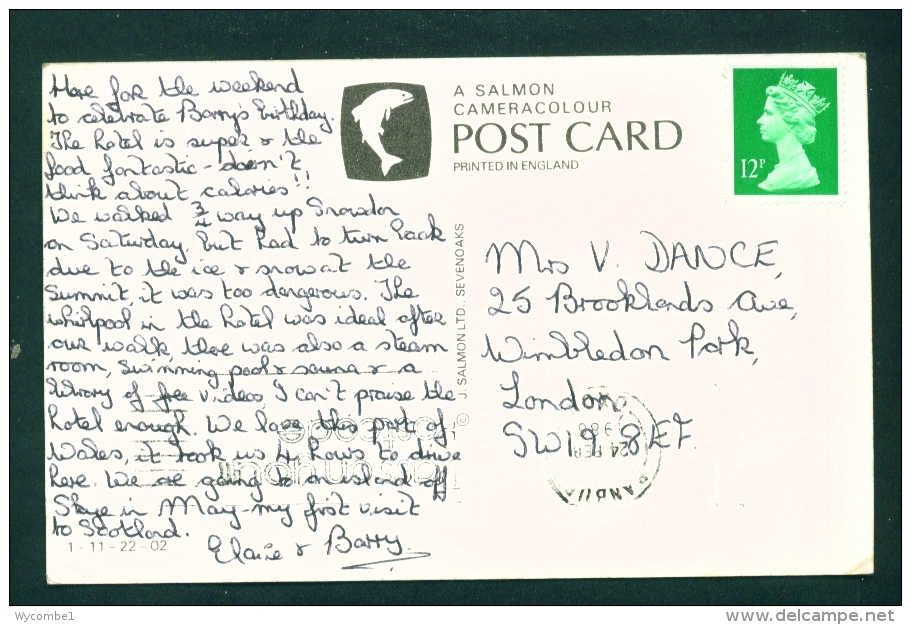 Here for the weekend
to celebrate Barry's birthday.
The hotel is super & the
food fantastic - doesn't
think about calories!!
We walked 3/4 way up Snowdon
on Saturday, but had to turn back
due to the ice & snow at the
Summit, it was too dangerous. The
whirlpool in the hotel was ideal after
our walk, there was also a steam
room, swimming pool & sauna & a
library of free videos I can't praise the
hotel enough. We love this part of
Wales, it took us 4 hours to drive
here. We are going to an island off
Skye in May - my first visit
to Scotland.
1-11-22-02
Elaine & Barry.
A SALMON
CAMERACOLOUR
POST CARD
PRINTED IN ENGLAND
© J. SALMON LTD., SEVENOAKS
12P
Mrs V. DANCE,
25 Brooklands Ave,
Wimbledon Park,
London
SW19 8EF.
24 FEB
1988
Wycombe1
www.delcampe.net